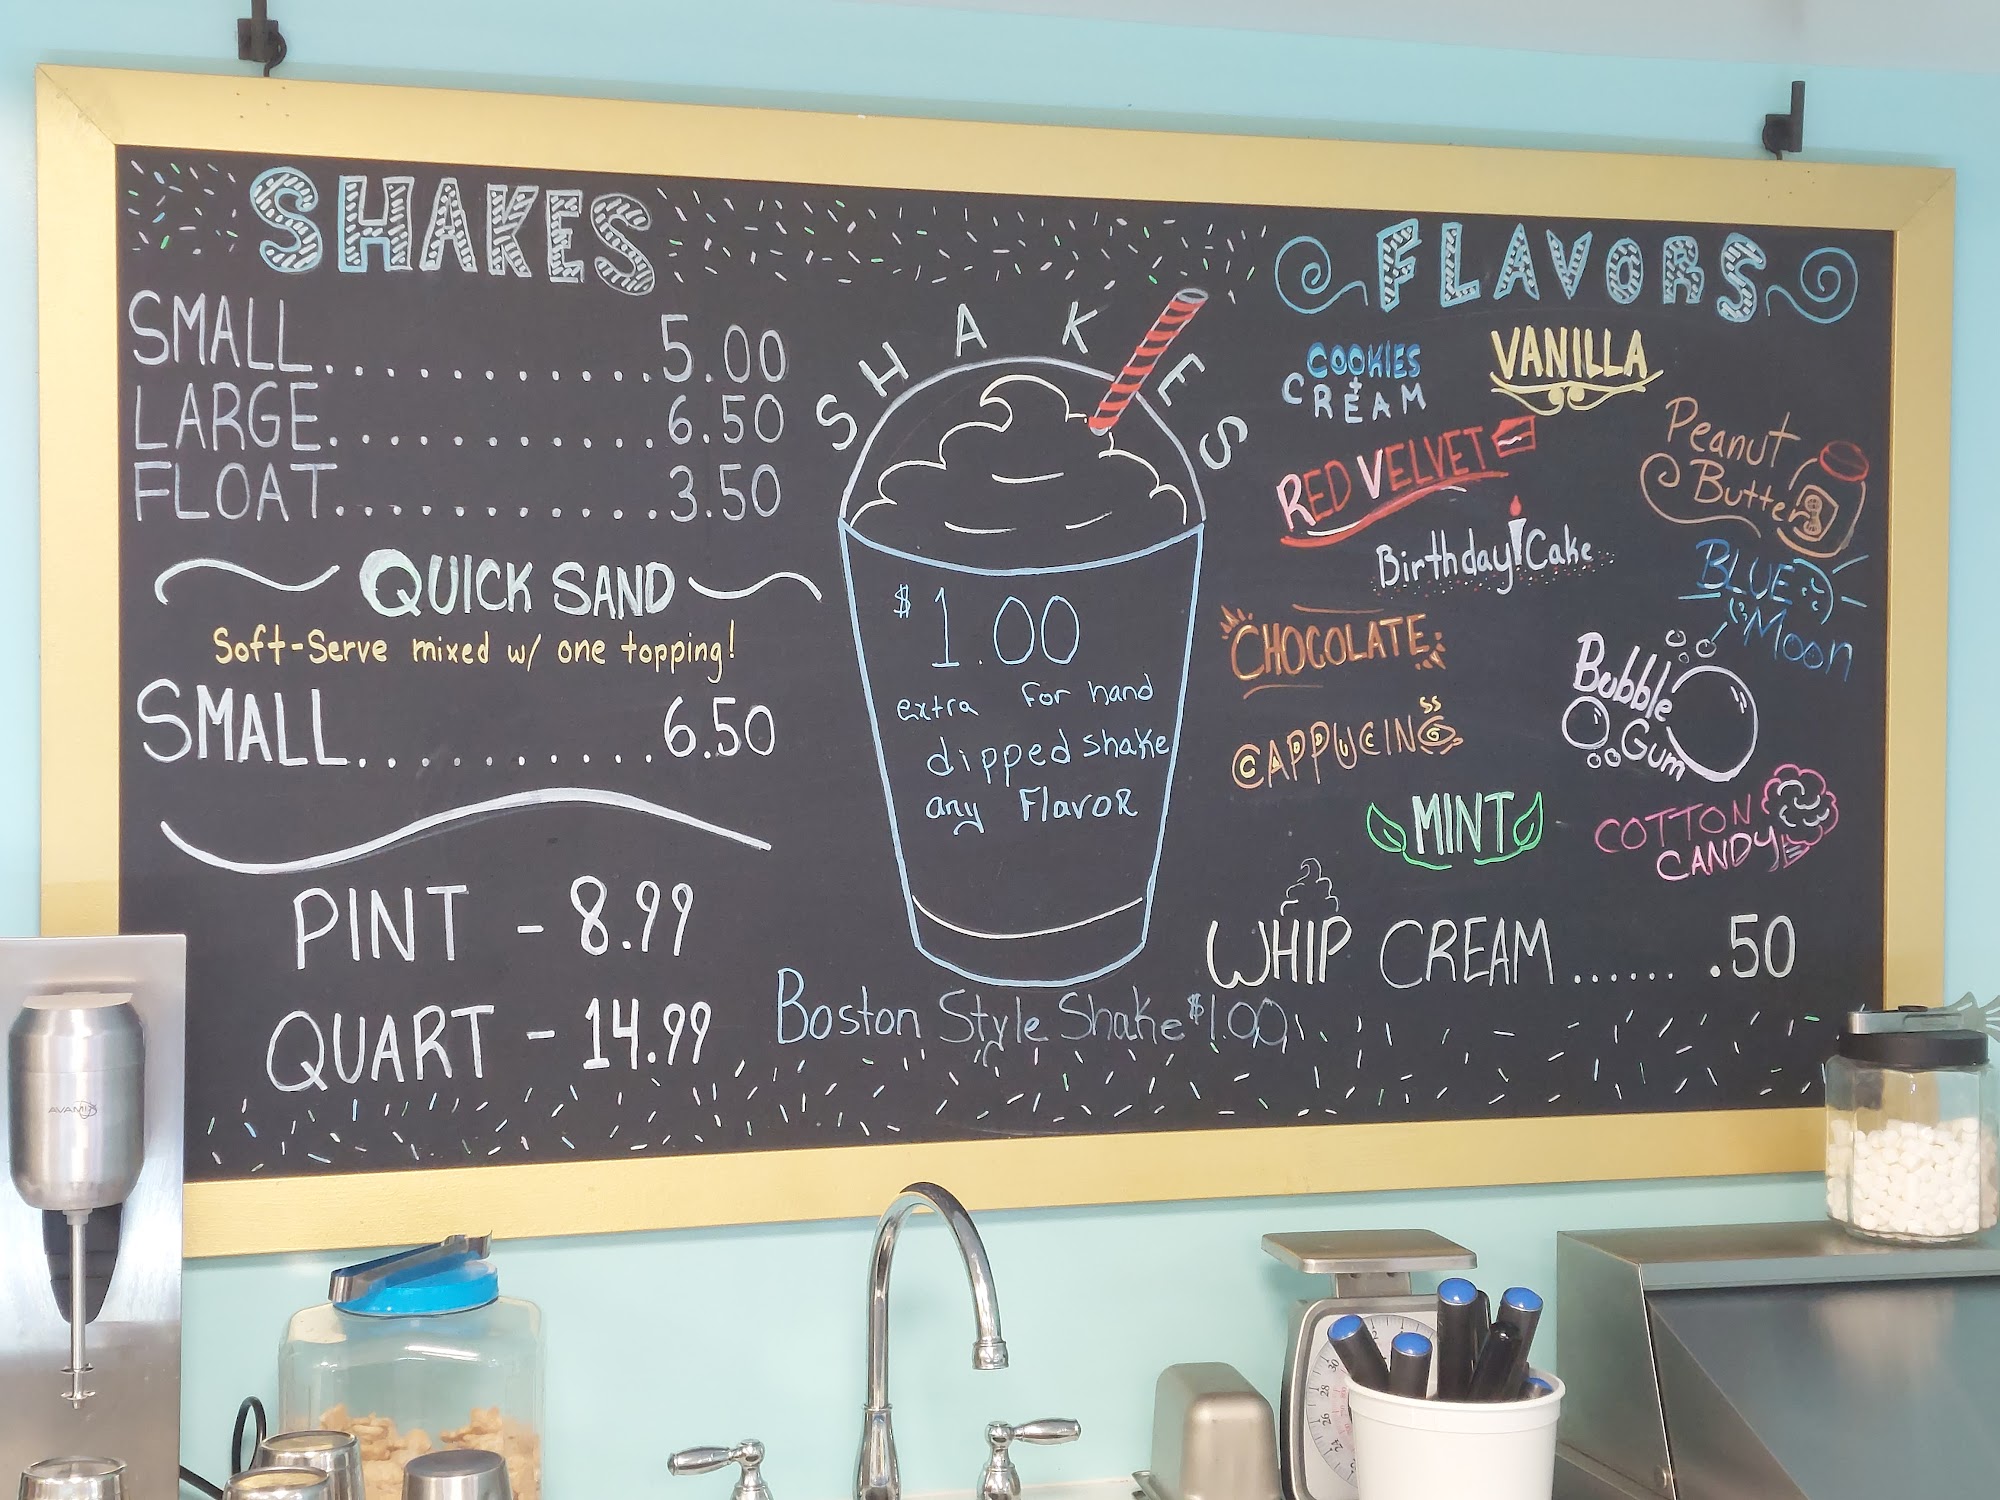 SHAKES
SMALL............5.00
LARGE............6.50
FLOAT............3.50
QUICK SAND
Soft-Serve mixed w/ one topping!
SMALL..........6.50
PINT - 8.99
QUART - 14.99
SHAKES
$1.00
extra For hand
dipped shake
any FlavoR
Boston Style Shake $1.00
FLAVORS
COOKIES
+
CREAM
VANILLA
RED VELVET
Peanut
Butter
Birthday Cake
BLUE
Moon
CHOCOLATE
Bubble
Gum
CAPPUCINO
MINT
COTTON
CANDY
WHIP CREAM ...... .50